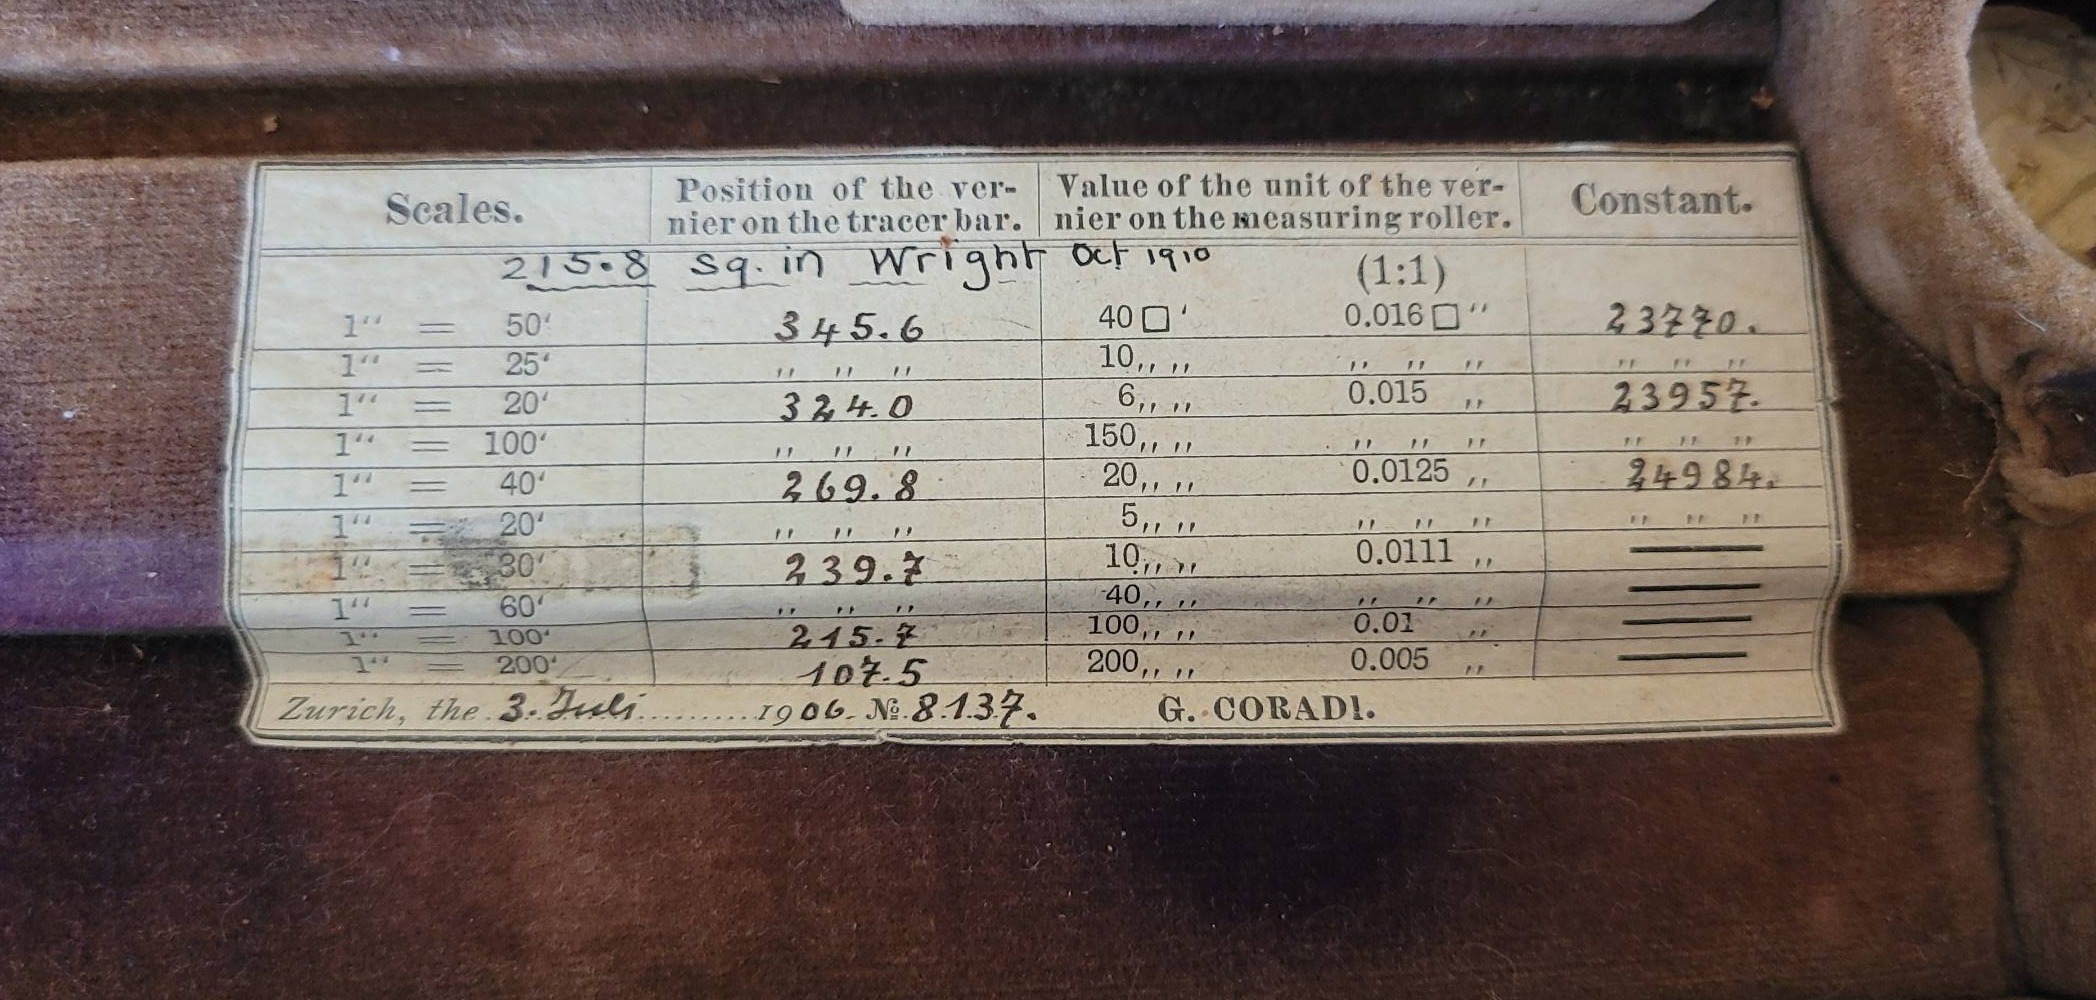 Scales. Position of the ver- Value of the unit of the ver- Constant.
nier on the tracer bar. nier on the measuring roller.
215.8 sq. in Wright Oct 1910
(1:1)
1'' = 50' 345.6 40 □' 0.016 □'' 23770.
1'' = 25' ,, ,, ,, 10 ,, ,, ,, ,, ,, ,, ,, ,,
1'' = 20' 324.0 6 ,, ,, 0.015 ,, 23957.
1'' = 100' ,, ,, ,, 150 ,, ,, ,, ,, ,, ,, ,, ,,
1'' = 40' 269.8 20 ,, ,, 0.0125 ,, 24984.
1'' = 20' ,, ,, ,, 5 ,, ,, ,, ,, ,, ,, ,, ,,
1'' = 30' 239.7 10 ,, ,, 0.0111 ,, —
1'' = 60' ,, ,, ,, 40 ,, ,, ,, ,, ,, —
1'' = 100' 215.7 100 ,, ,, 0.01 ,, —
1'' = 200' 107.5 200 ,, ,, 0.005 ,, —
Zurich, the 3. Juli 1906. № 8137. G. CORADI.